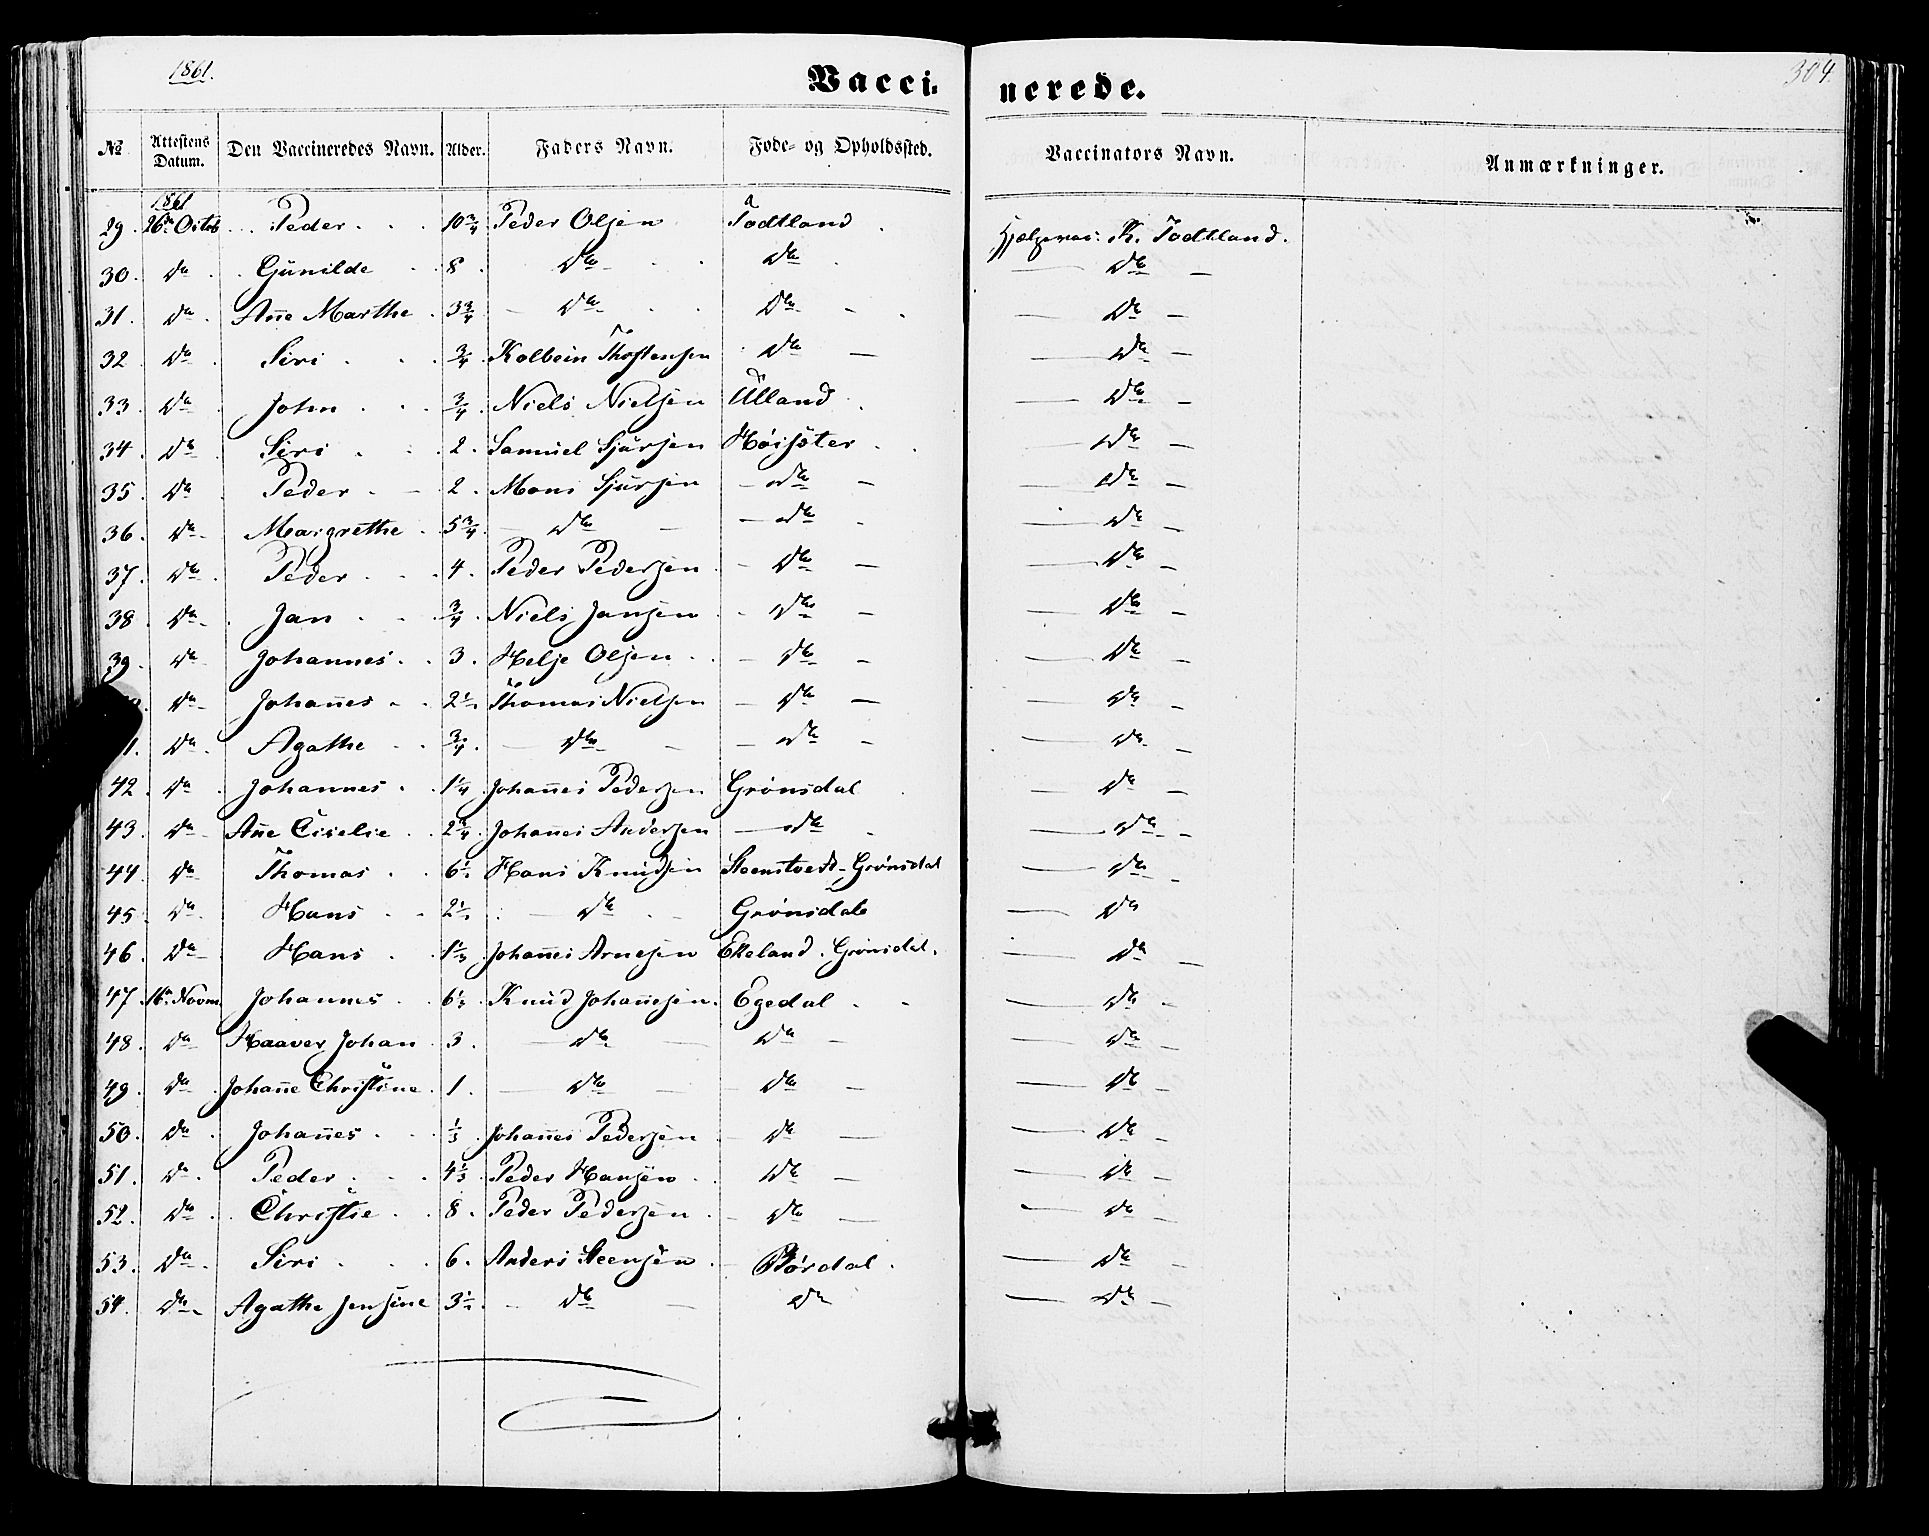 1861.
Vaccinerede.
304
№ Attestens Datum. Den Vaccineredes Navn. Alder. Faders Navn. Føde- og Opholdssted. Vaccinators Navn. Anmærkninger.
1861
29. 26de Octob Peder 10 3/4 Peder Olsen Todtland Hjelpevac: K. Todtland.
30. Do Gunilde 8 Do Do Do
31. Do Ane Marthe 3 3/4 Do Do Do
32 Do Siri 3/4 Kolbein Thostensen Do Do
33. Do John 3/4 Niels Nielsen Ulland Do
34. Do Siri 2. Samuel Sjursen Høisæter Do
35. Do Peder 2. Mons Sjursen Do Do
36. Do Margrethe 5 3/4 Do Do Do
37. Do Peder 4. Peder Pedersen Do Do
38. Do Jan 3/4 Niels Jansen Do Do
39. Do Johannes 3. Helje Olsen Do Do
Do Johan̄es 2 1/2 Thomas Nielsen Do Do
1. Do Agathe 3/4 Do Do Do
42. Do Johannes 1 1/4 Johan̄es Pedersen Grønsdal Do
43. Do An̄e Ciselie 2 3/4 Johan̄es Andersen Do Do
44. Do Thomas 6 1/2 Hans Knudsen Steenstvedt, Grønsdal Do
45. Do Hans 2 1/2 Do Grønsdal Do
46. Do Hans 1 1/3 Johan̄es Arnesen Ekeland. Grønsdal. Do
47. 16de Novm. Johannes 6 1/2 Knud Johan̄esen. Egedal Do
48. Do Haaver Johan 3. Do Do Do
49. Do Johan̄e Christine 1. Do Do Do
50. Do Johan̄es 1/3 Johan̄es Pedersen Do Do
51. Do Peder 4 1/3 Peder Hansen Do Do
52. Do Christie 8. Peder Pedersen Do Do
53. Do Siri 6. Anders Steensen Børdal. Do
54. Do Agathe Jensine 3 1/2 Do Do Do